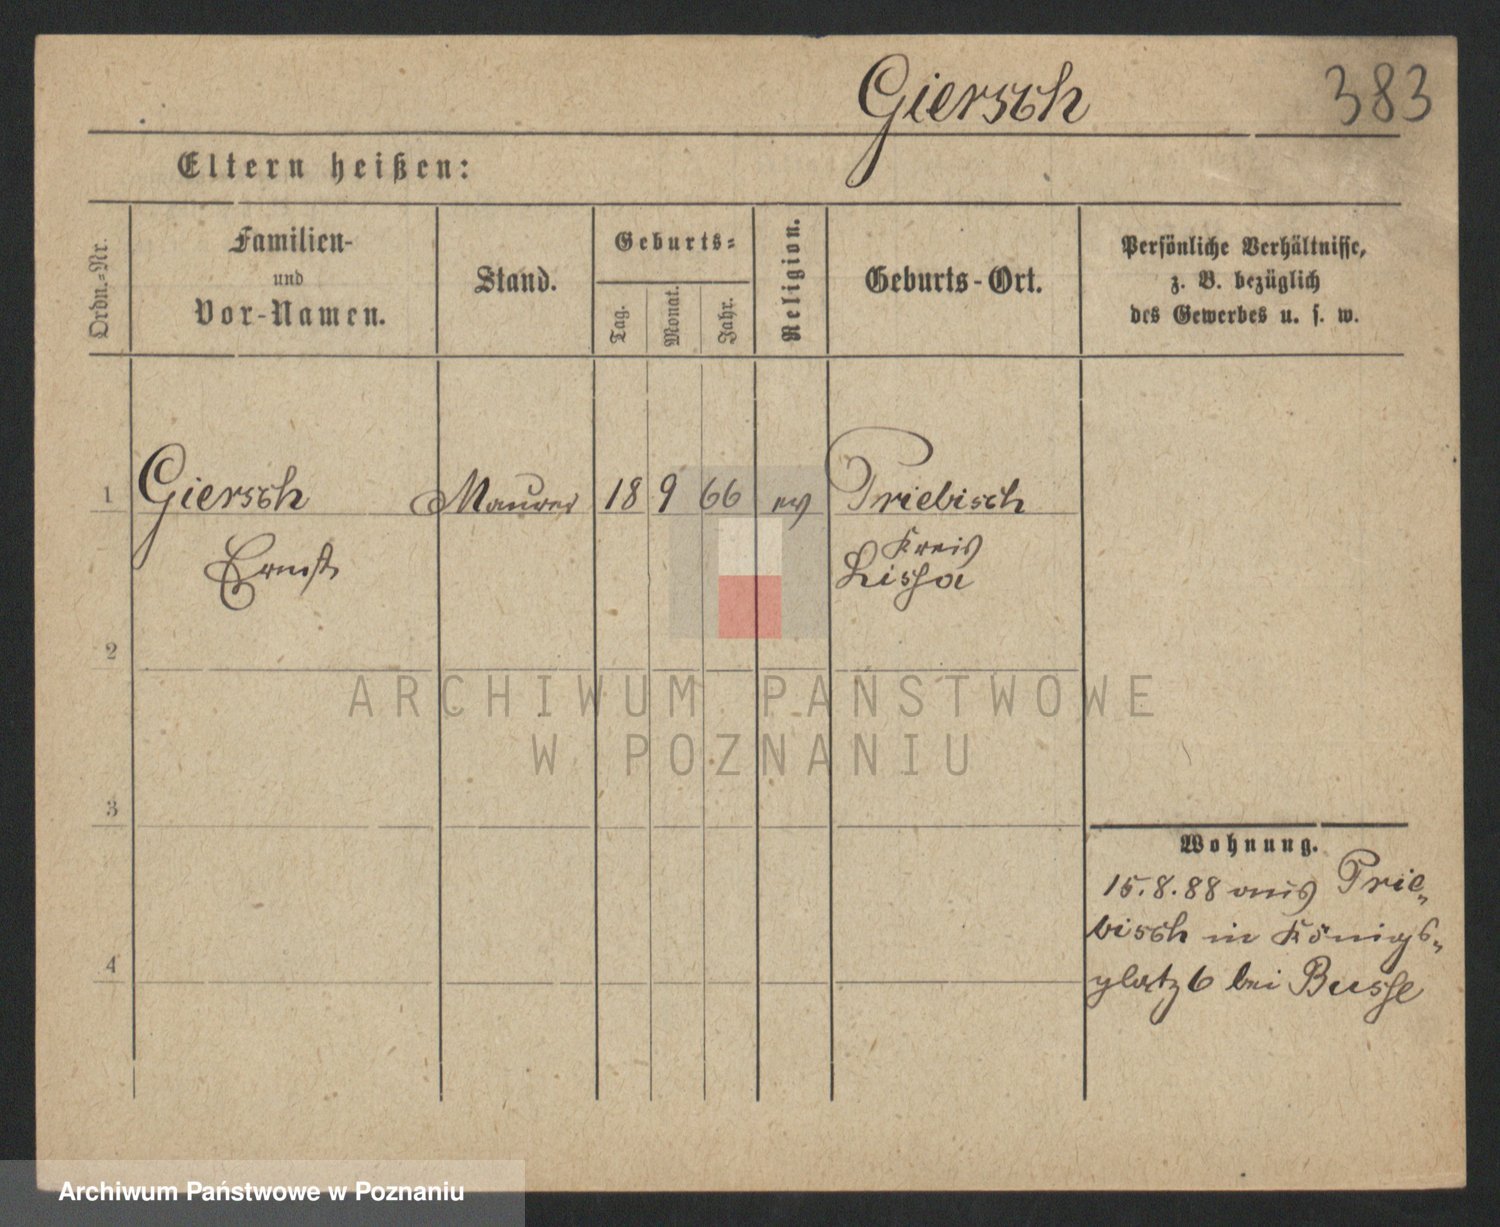 Giersch 383
Eltern heißen:
Ordn.-Nr.
Familien-
und
Vor-Namen.
Stand.
Geburts-
Tag.
Monat.
Jahr.
Religion.
Geburts-Ort.
Persönliche Verhältnisse,
z. B. bezüglich
des Gewerbes u. s. w.
1 Giersch Maurer 18 9 66 ev Priebisch
Ernst
Kreis
Lissa
2
ARCHIWUM PAŃSTWOWE
W POZNANIU
3
Wohnung.
15.8.88 aus Prie-
bisch in Königs-
platz 6 bei Busse
4
Archiwum Państwowe w Poznaniu